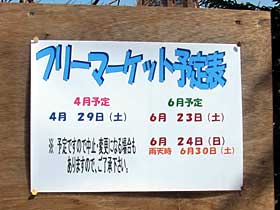 フリーマーケット予定表
4月予定
4月 29日(土)
6月予定
6月 23日(土)
6月 24日(日)
雨天時 6月30日(土)
※ 予定ですので中止・変更になる場合も
ありますので、ご了承下さい。